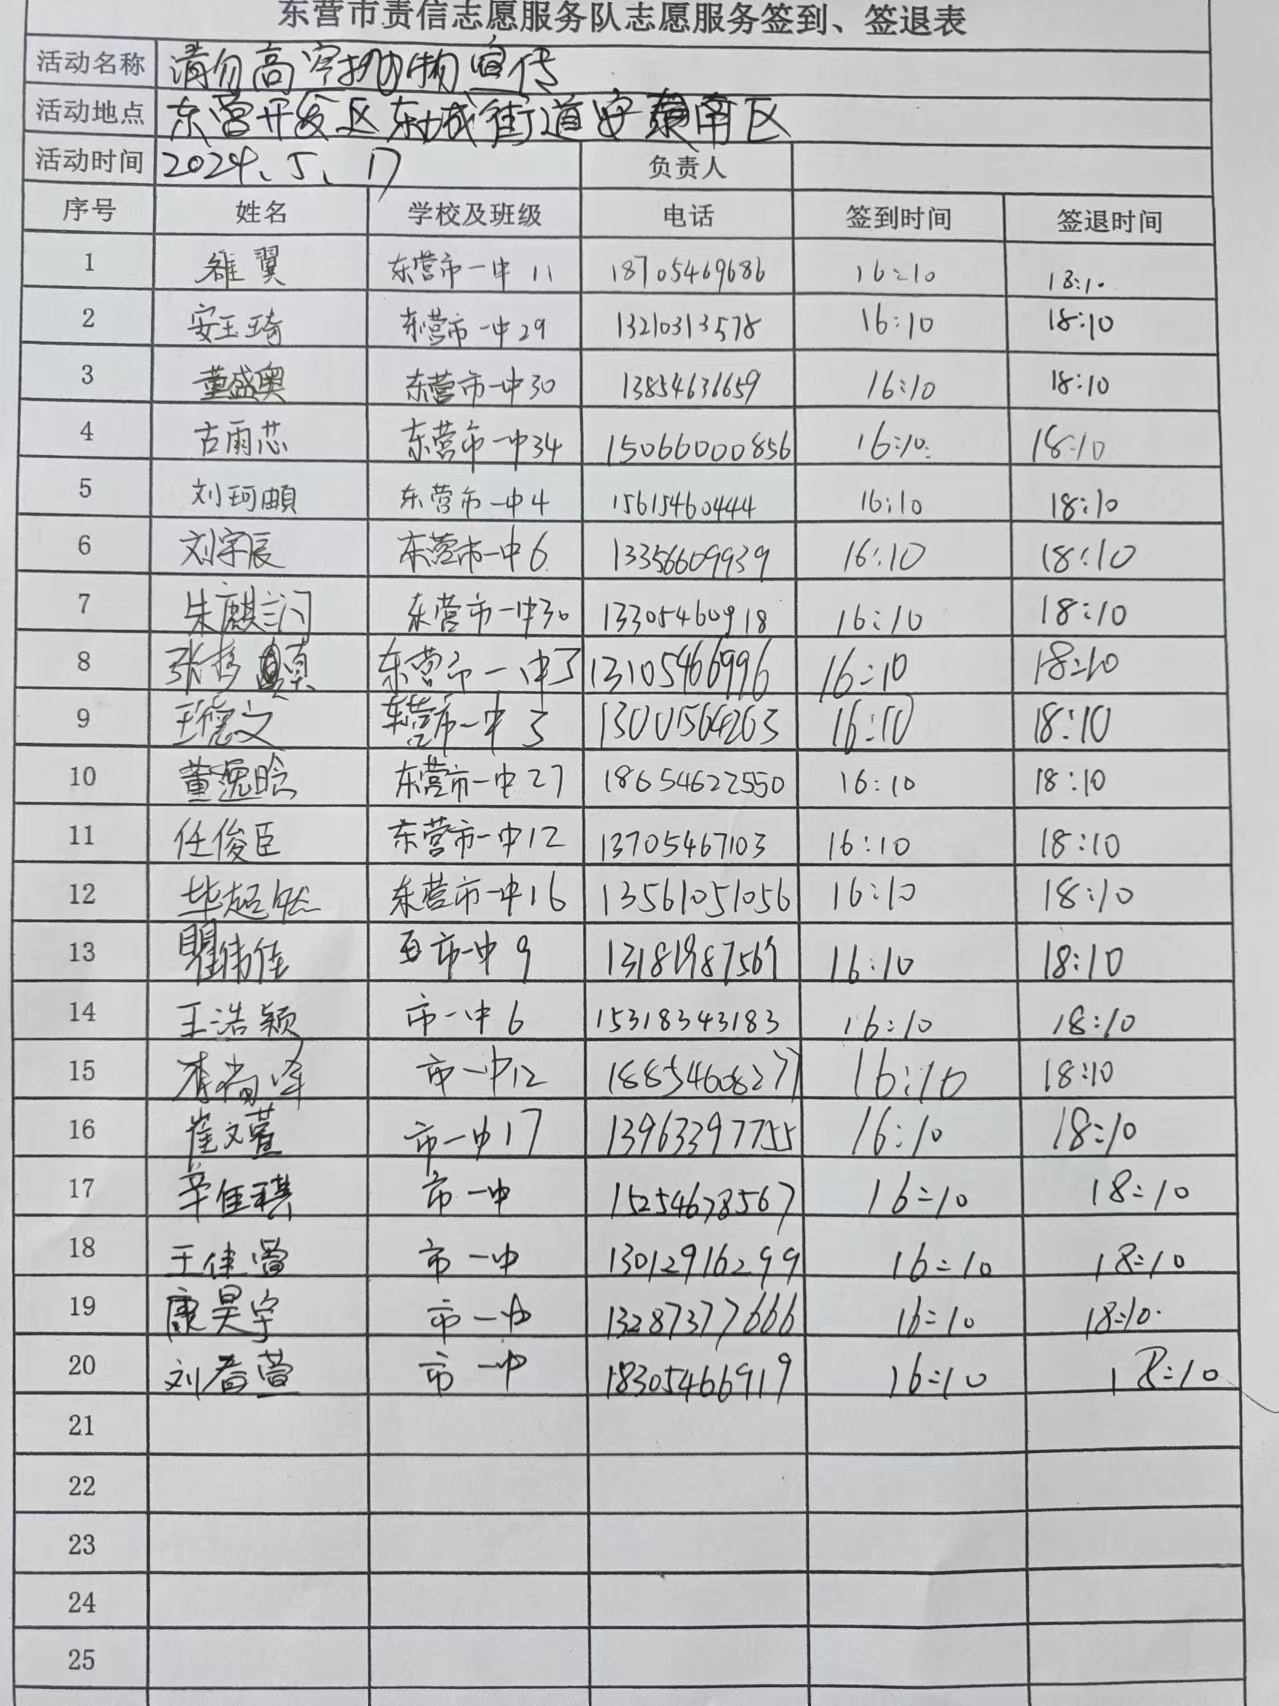 东营市责信志愿服务队志愿服务签到、签退表
活动名称 请勿高空抛物宣传
活动地点 东营开发区东城街道安泰南区
活动时间 2024、5、17 负责人
序号 姓名 学校及班级 电话 签到时间 签退时间
1 翼 东营市一中 11 18705469686 16:10 18:10
2 安玉琦 东营市一中29 13210313578 16:10 18:10
3 董盛奥 东营市一中30 13854631659 16:10 18:10
4 古雨芯 东营市一中34 15066000856 16:10 18:10
5 刘珂頔 东营市一中4 15615460444 16:10 18:10
6 刘宇辰 东营市一中6 13356609939 16:10 18:10
7 朱麒 东营市一中30 13305460918 16:10 18:10
8 张 东营市一中3 13105466996 16:10 18:10
9 王德文 东营市一中3 13001564263 16:10 18:10
10 董逸晗 东营市一中27 18654622550 16:10 18:10
11 任俊臣 东营市一中12 13705467103 16:10 18:10
12 毕超然 东营市一中16 13561051056 16:10 18:10
13 瞿伟佳 市一中9 16:10 18:10
14 王浩颖 市一中6 15318343183 16:10 18:10
15 李尚泽 市一中12 18854608277 16:10 18:10
16 崔文萱 市一中17 13963397755 16:10 18:10
17 辛佳琪 市一中 15254678567 16:10 18:10
18 王佳 市一中 13012916299 16:10 18:10
19 康昊宇 市一中 13287377666 16:10 18:10
20 刘春萱 市一中 18305466919 16:10 18:10
21
22
23
24
25